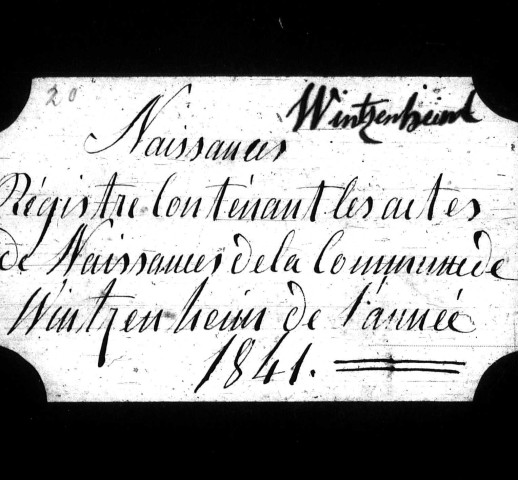 20
Wintzenheim
Naissances
Régistre Contenant les actes
de Naissances de la Commune de
Wintzenheim de l'année
1841.